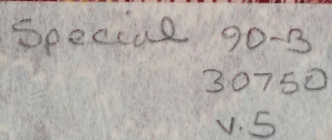 Special 90-3
30750
v.5